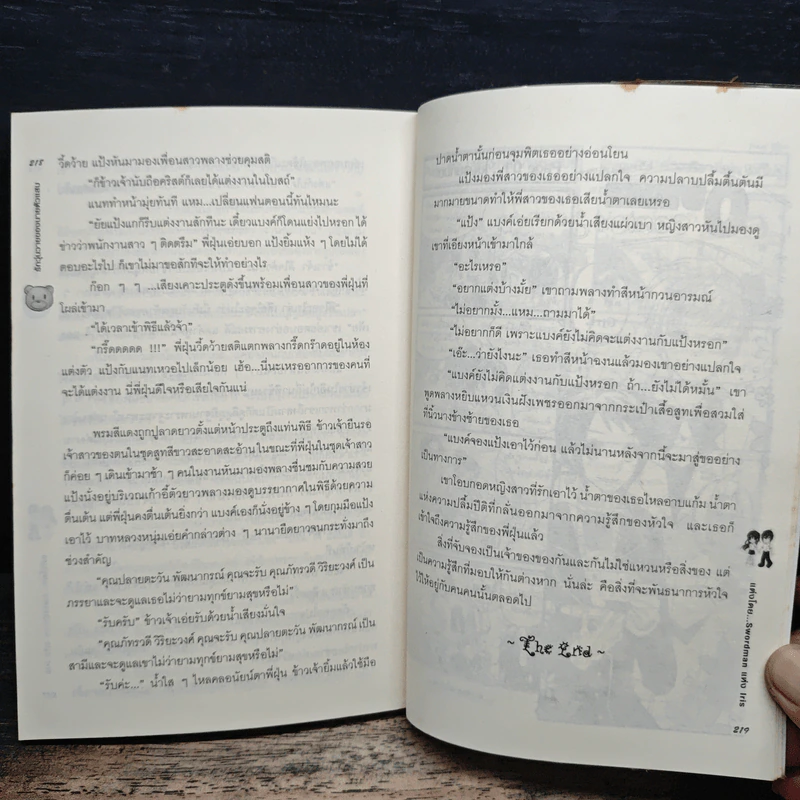 218
วี้ดว้าย แป้งหันมามองเพื่อนสาวพลางช่วยคุมสติ
"ก็ข้าวเจ้านับถือคริสต์ก็เลยได้แต่งงานในโบสถ์"
แนททำหน้ามุ่ยทันที แหม...เปลี่ยนแฟนตอนนี้ทันไหมนะ
"ยัยแป้งแกก็รีบแต่งงานสักทีนะ เดี๋ยวแบงค์ก็โดนแย่งไปหรอก ได้
ข่าวว่าพนักงานสาว ๆ ติดตรึม" พี่ฝุ่นเอ่ยบอก แป้งยิ้มแห้ง ๆ โดยไม่ได้
ตอบอะไรไป ก็เขาไม่มาขอสักทีจะให้ทำอย่างไร
ก๊อก ๆ ๆ ...เสียงเคาะประตูดังขึ้นพร้อมเพื่อนสาวของพี่ฝุ่นที่
โผล่เข้ามา
"ได้เวลาเข้าพิธีแล้วจ้า"
"กรี๊ดดดดด !!!" พี่ฝุ่นวี้ดว้ายสติแตกพลางกรี๊ดกร๊าดอยู่ในห้อง
แต่งตัว แป้งกับแนทเหวอไปเล็กน้อย เฮ้อ...นี่นะเหรออาการของคนที่
จะได้แต่งงาน นี่พี่ฝุ่นดีใจหรือเสียใจกันแน่
พรมสีแดงถูกปูลาดยาวตั้งแต่หน้าประตูถึงแท่นพิธี ข้าวเจ้ายืนรอ
เจ้าสาวของตนในชุดสูทสีขาวสะอาดสะอ้าน ในขณะที่พี่ฝุ่นในชุดเจ้าสาว
ก็ค่อย ๆ เดินเข้ามาช้า ๆ คนในงานหันมามองพลางชื่นชมกับความสวย
แป้งนั่งอยู่บริเวณเก้าอี้ตัวยาวพลางมองดูบรรยากาศในพิธีด้วยความ
ตื่นเต้น แต่พี่ฝุ่นคงตื่นเต้นยิ่งกว่า แบงค์เองก็นั่งอยู่ข้าง ๆ โดยกุมมือแป้ง
เอาไว้ บาทหลวงหนุ่มเอ่ยคำกล่าวต่าง ๆ นานายืดยาวจนกระทั่งมาถึง
ช่วงสำคัญ
"คุณปลายตะวัน พัฒนากรณ์ คุณจะรับ คุณภัทรวดี วิริยะวงค์ เป็น
ภรรยาและจะดูแลเธอไม่ว่ายามทุกข์ยามสุขหรือไม่"
"รับครับ" ข้าวเจ้าเอ่ยรับด้วยน้ำเสียงมั่นใจ
"คุณภัทรวดี วิริยะวงค์ คุณจะรับ คุณปลายตะวัน พัฒนากรณ์ เป็น
สามีและจะดูแลเขาไม่ว่ายามทุกข์ยามสุขหรือไม่"
"รับค่ะ..." น้ำใส ๆ ไหลคลอนัยน์ตาพี่ฝุ่น ข้าวเจ้ายิ้มแล้วใช้มือ
ปาดน้ำตานั้นก่อนจุมพิตเธออย่างอ่อนโยน
แป้งมองพี่สาวของเธออย่างแปลกใจ ความปลาบปลื้มตื้นตันมี
มากมายขนาดทำให้พี่สาวของเธอเสียน้ำตาเลยเหรอ
"แป้ง" แบงค์เอ่ยเรียกด้วยน้ำเสียงแผ่วเบา หญิงสาวหันไปมองดู
เขาที่เอียงหน้าเข้ามาใกล้
"อะไรเหรอ"
"อยากแต่งบ้างมั้ย" เขาถามพลางทำสีหน้ากวนอารมณ์
"ไม่อยากมั้ง...แหม...ถามมาได้"
"ไม่อยากก็ดี เพราะแบงค์ยังไม่คิดจะแต่งงานกับแป้งหรอก"
"เอ๊ะ...ว่ายังไงนะ" เธอทำสีหน้าฉงนแล้วมองเขาอย่างแปลกใจ
"แบงค์ยังไม่คิดแต่งงานกับแป้งหรอก ถ้า...ยังไม่ได้หมั้น" เขา
พูดพลางหยิบแหวนเงินฝังเพชรออกมาจากกระเป๋าเสื้อสูทเพื่อสวมใส่
ที่นิ้วนางข้างซ้ายของเธอ
"แบงค์จองแป้งเอาไว้ก่อน แล้วไม่นานหลังจากนี้จะมาสู่ขออย่าง
เป็นทางการ"
เขาโอบกอดหญิงสาวที่รักเอาไว้ น้ำตาของเธอไหลอาบแก้ม น้ำตา
แห่งความปลื้มปีติที่กลั่นออกมาจากความรู้สึกของหัวใจ และเธอก็
เข้าใจถึงความรู้สึกของพี่ฝุ่นแล้ว
สิ่งที่จับจองเป็นเจ้าของของกันและกันไม่ใช่แหวนหรือสิ่งของ แต่
เป็นความรู้สึกที่มอบให้กันต่างหาก นั่นล่ะ คือสิ่งที่จะพันธนาการหัวใจ
ไว้ให้อยู่กับคนคนนั้นตลอดไป
~ The End ~
แต่งโดย...Swordman แห่ง Iris
219